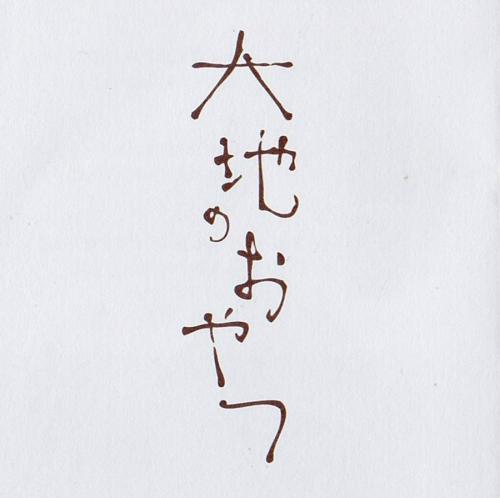 大地のおやつ